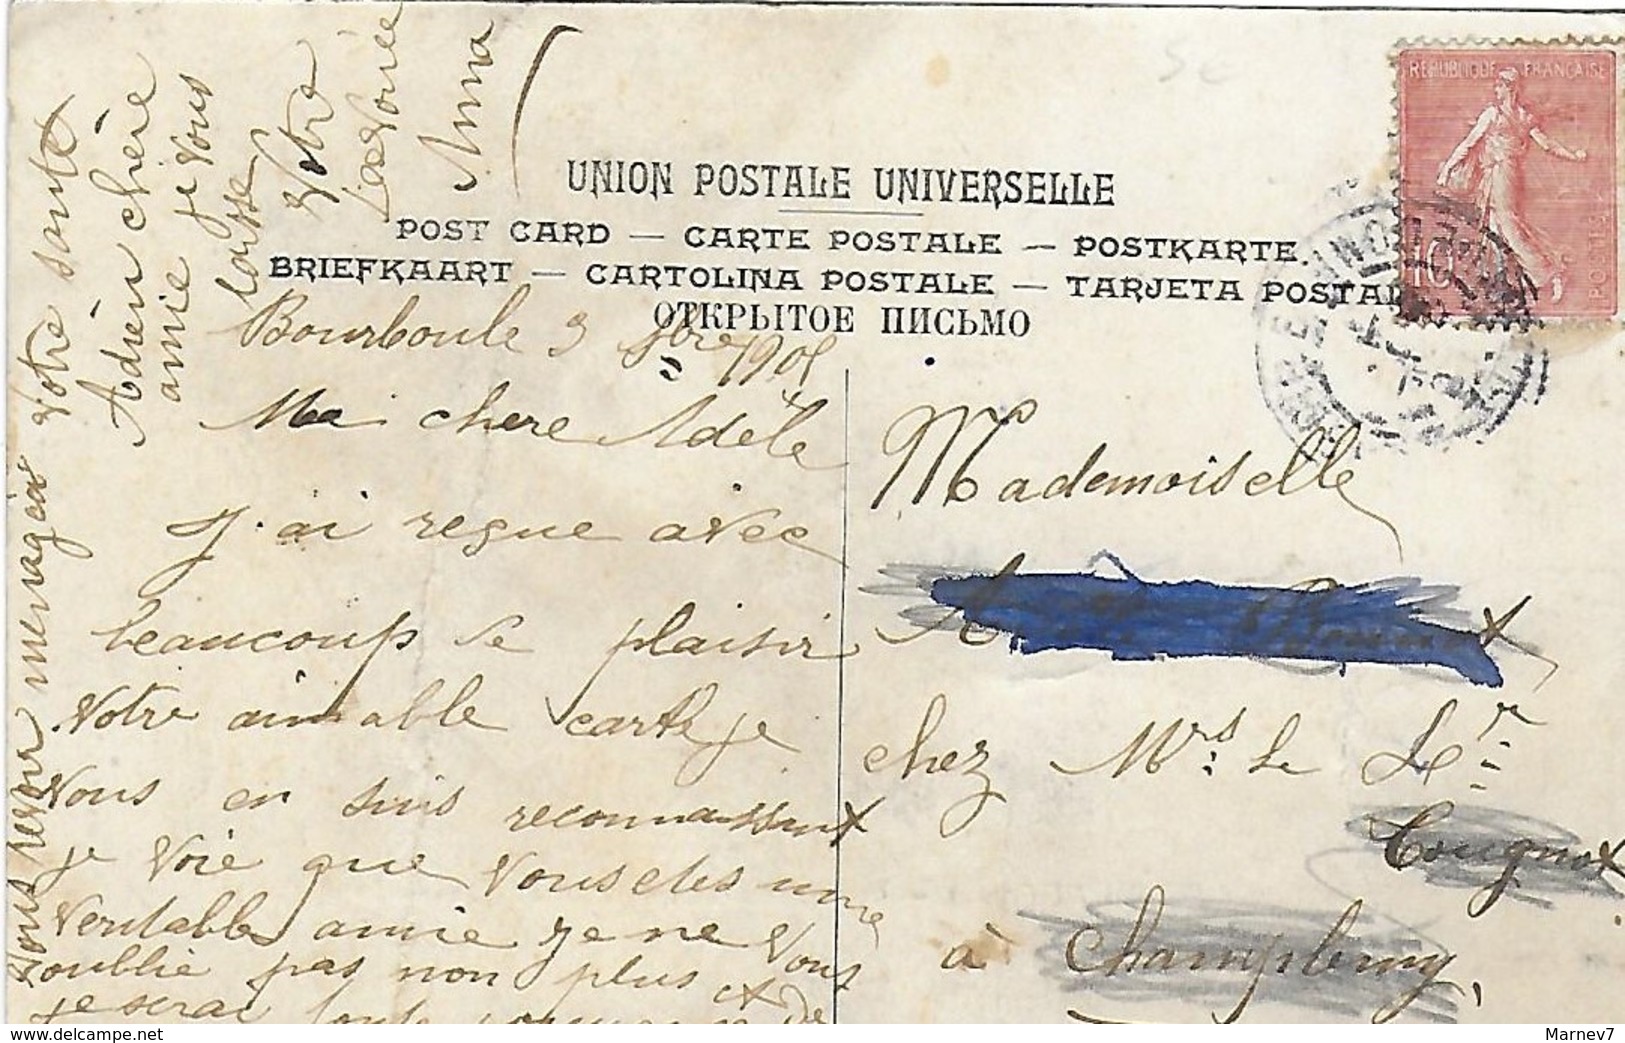 RÉPUBLIQUE FRANÇAISE
10
POSTES
UNION POSTALE UNIVERSELLE
POST CARD — CARTE POSTALE — POSTKARTE.
BRIEFKAART — CARTOLINA POSTALE — TARJETA POSTAL
ОТКРЫТОЕ ПИСЬМО
Bourboule 3 9bre 1905
Ma chere Adèle
J'ai reçue avec
beaucoup de plaisir
votre aimable carte je
vous en suis reconnaissant
je voie que vous etes une
veritable amie je ne vous
oublie pas non plus et de
je serai toute
vous revoir menagér votre santé
Adieu chère
amie je vous
laisse
Votre
Dévouée
Anna
Mademoiselle
chez Mrs: le Dr
Cougnot
à Champlemy,
www.delcampe.net
Marnev7